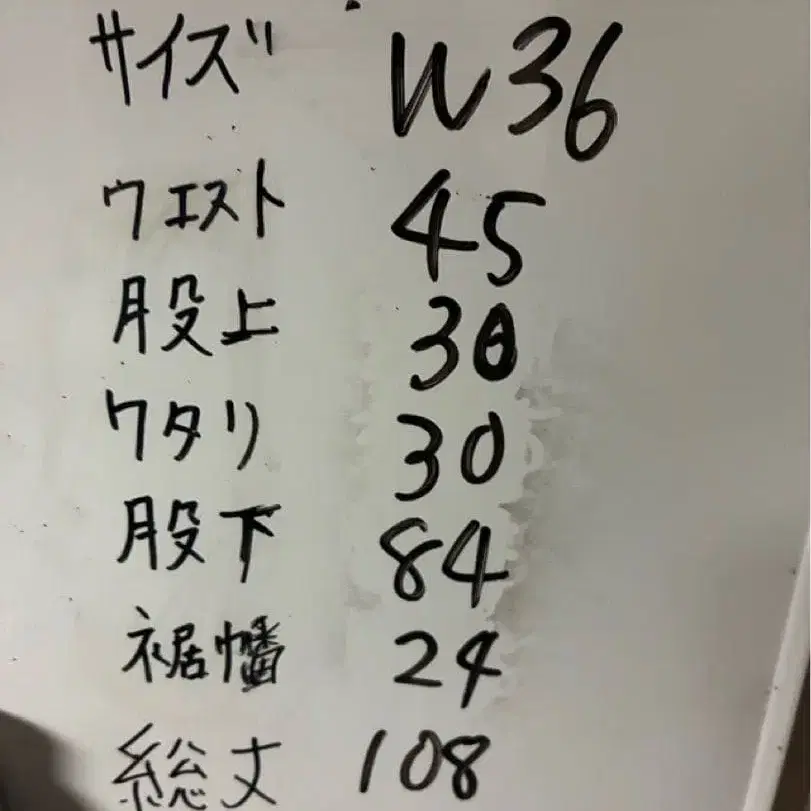 サイズ W36
ウエスト 45
股上 30
ワタリ 30
股下 84
裾幡 24
総丈 108